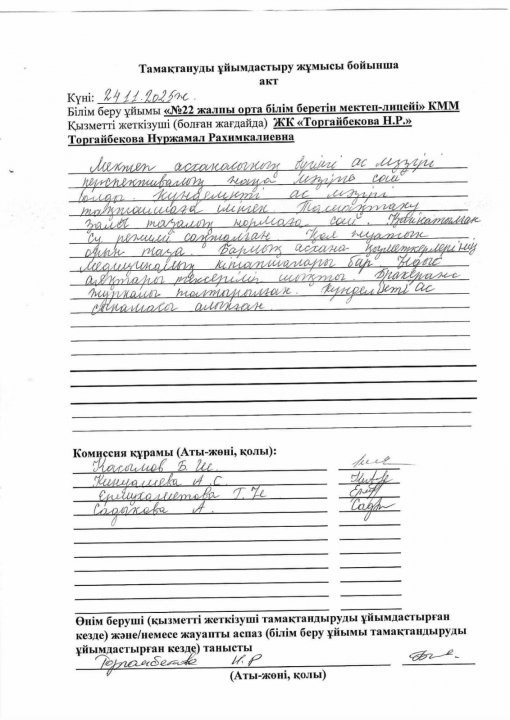 Тамақтануды ұйымдастыру жұмысы бойынша
акт
Күні: 24.11.2025ж.
Білім беру ұйымы «№22 жалпы орта білім беретін мектеп-лицейі» КММ
Қызметті жеткізуші (болған жағдайда) ЖК «Торгайбекова Н.Р.»
Торгайбекова Нуржамал Рахимкалиевна
Мектеп асханасының бүгінгі ас мәзірі
перспективалық жаңа мәзірге сай
болды. Күнделікті ас мәзірі
тақташаға ілінген. Тамақтану
залы тазалық нормаға сай. Қайнатылған
су режимі сақталған. Қол жуатын
орын таза. Барлық асхана қызметкерлерінің
медициналық кітапшалары бар. Ыдыс
аяқтары тексеріліп шықты. Бракераж
журналы толтырылған. Күнделікті ас
сынамасы алынған.
Комиссия құрамы (Аты-жөні, қолы):
Касымов Б. Ш.
Кинуалиева А. С.
Ермухаметова Г. К
Садыкова А.
Өнім беруші (қызметті жеткізуші тамақтандыруды ұйымдастырған
кезде) және/немесе жауапты аспаз (білім беру ұйымы тамақтандыруды
ұйымдастырған кезде) танысты
Торгайбекова Н.Р
(Аты-жөні, қолы)